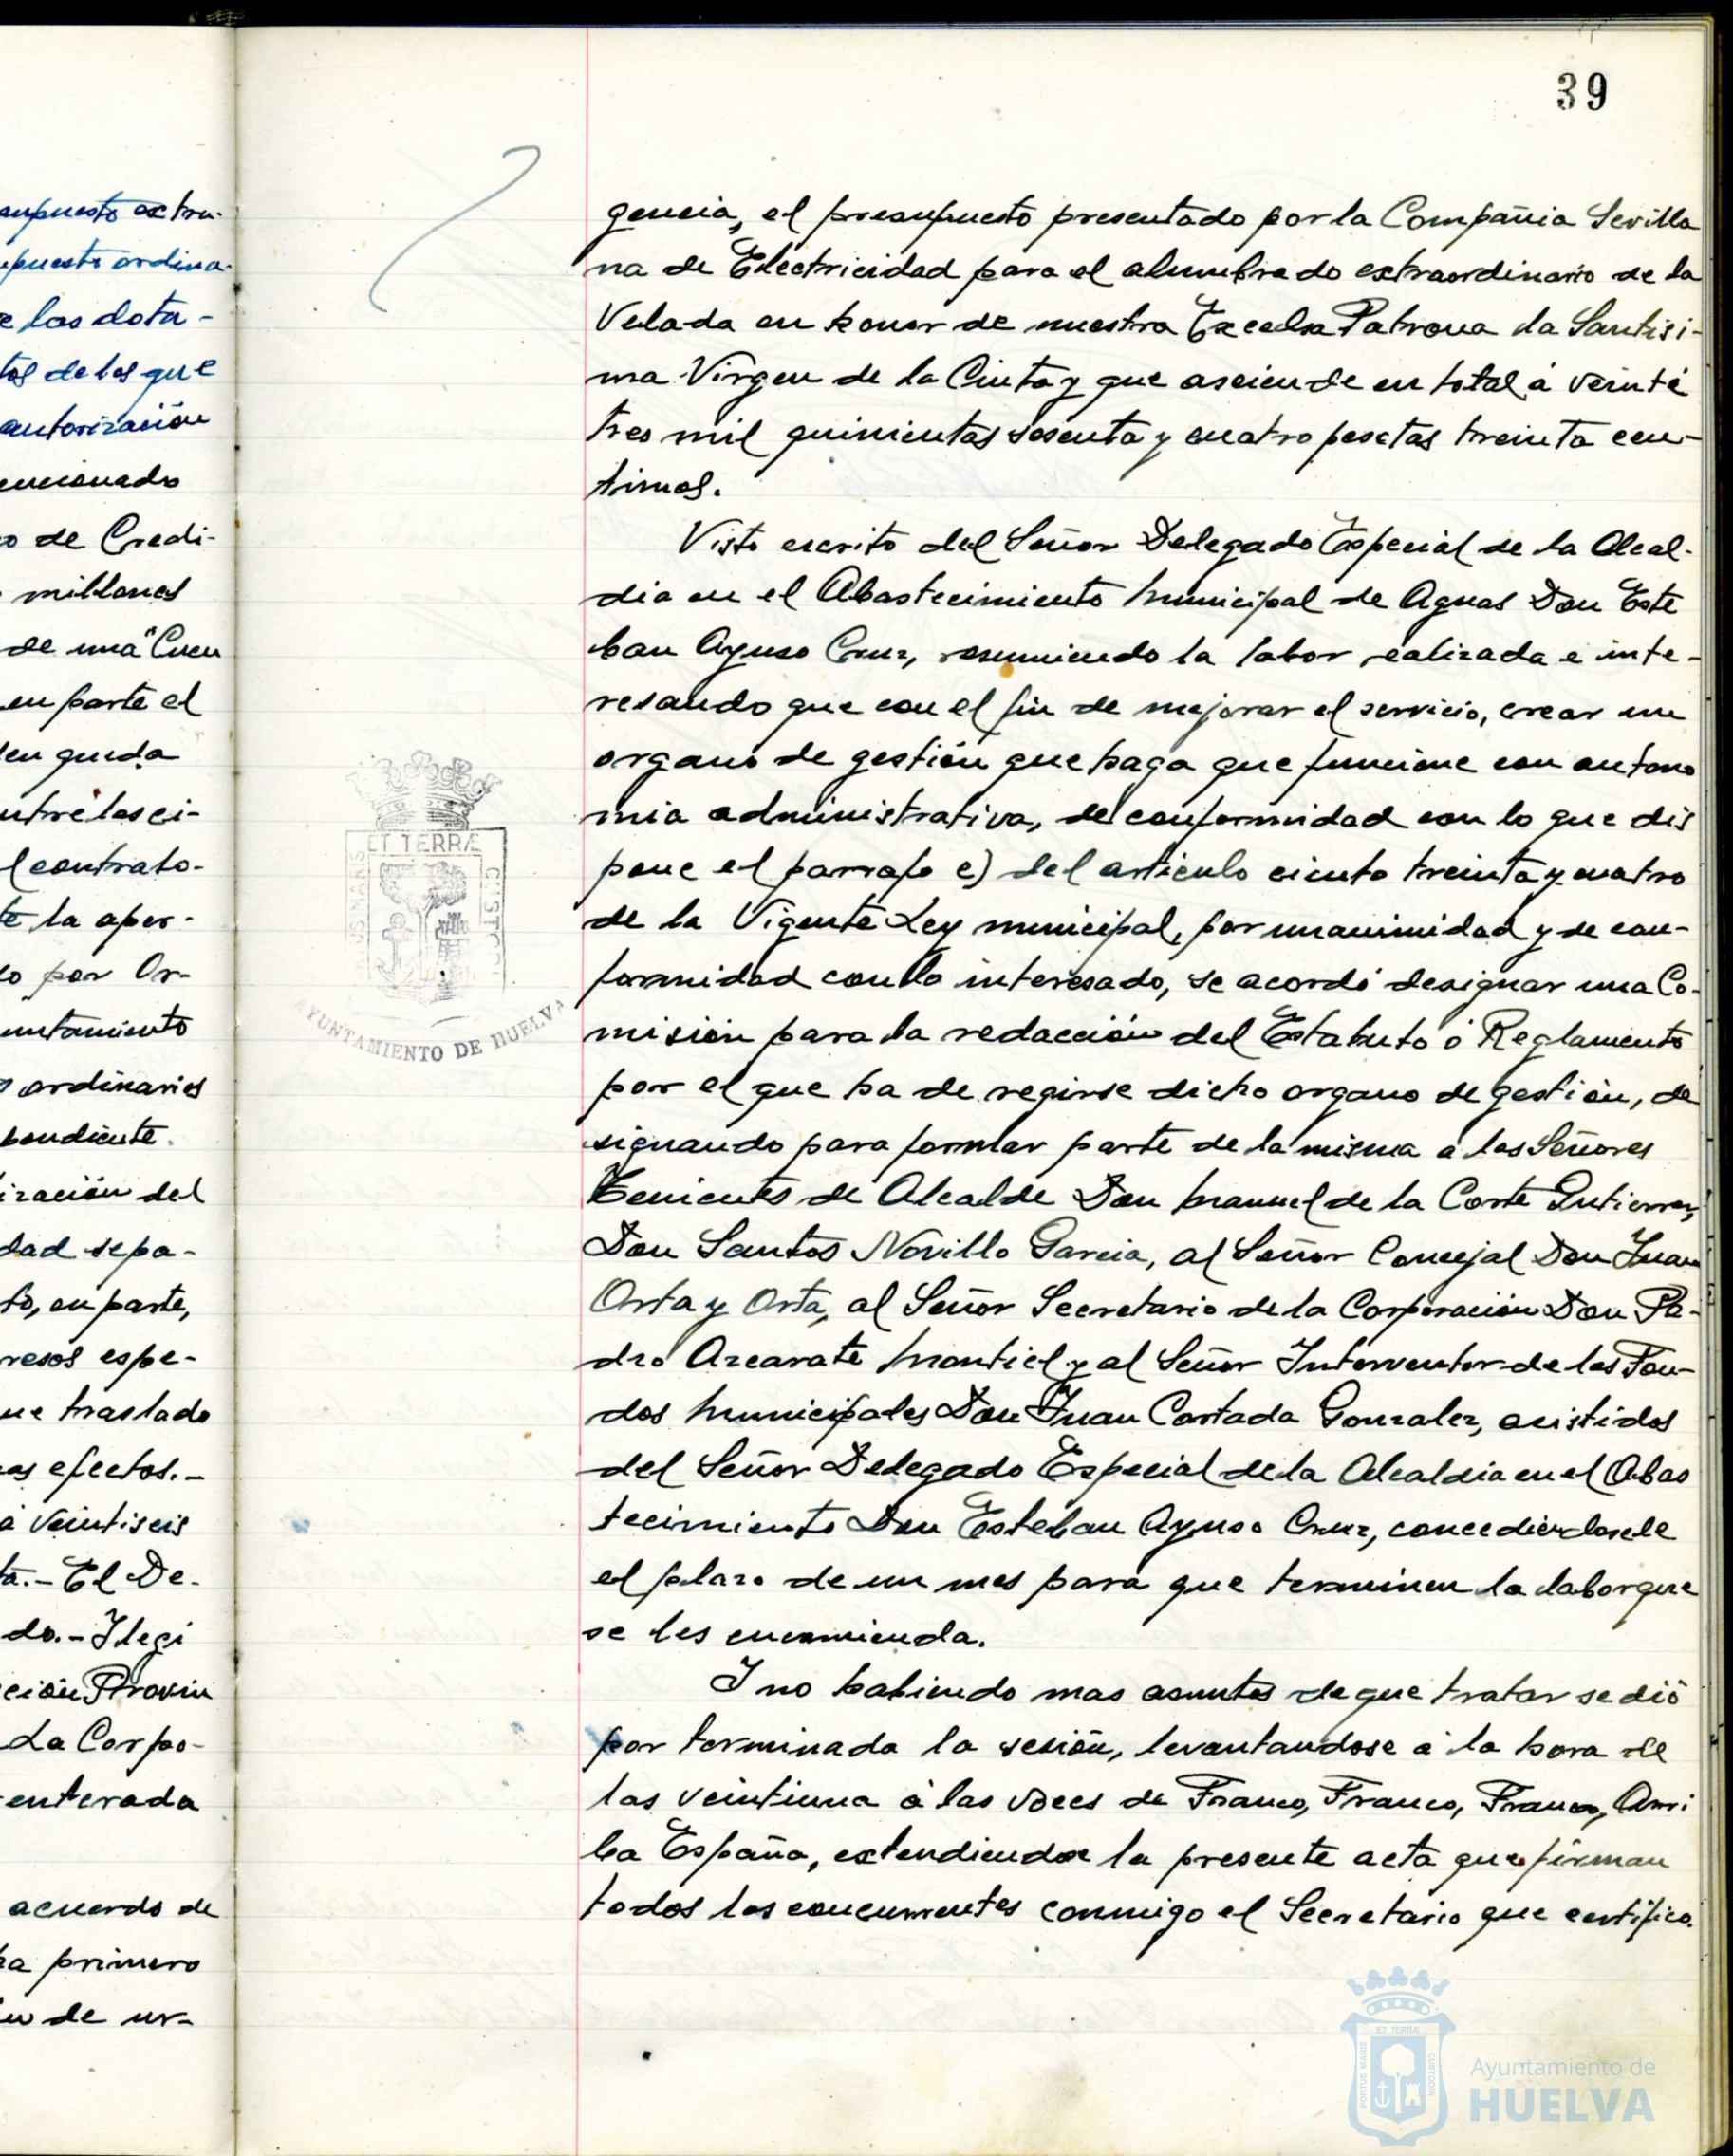 supuesto extra-
upuesto ordina-
e las dota-
tos de los que
autorización
encionado
o de Credi-
millones
de una "Cuen
en parte el
en queda
ntre los ci-
l contrato-
te la aper-
o por Or-
untamiento
ordinarios
pondiente.
ización del
dad sepa-
to, en parte,
resos espe-
ue traslado
os efectos.-
a veintiseis
ta.- El De-
do.- Ilegi
ción Provin
La Corpo-
enterada
acuerdo de
ra primero
de ur-
39
gencia, el presupuesto presentado por la Compañia Sevilla
na de Electricidad para el alumbrado extraordinario de la
Velada en honor de nuestra Excelsa Patrona la Santisi-
ma Virgen de la Cinta y que asciende en total á veinte
tres mil quinientas sesenta y cuatro pesetas treinta cen-
timos.
Visto escrito del Señor Delegado Especial de la Alcal-
dia en el Abastecimiento Municipal de Aguas Don Este
ban Ayuso Cruz, resumiendo la labor realizada e inte-
resando que con el fin de mejorar el servicio, crear un
organo de gestión que haga que funcione con autono
mia administrativa, de conformidad con lo que dis
pone el parrafo e) del articulo ciento treinta y cuatro
de la Vigente Ley municipal, por unanimidad y de con-
formidad con lo interesado, se acordó designar una Co-
misión para la redacción del Estatuto ó Reglamento
por el que ha de regirse dicho organo de gestión, de
signando para formar parte de la misma a los Señores
Tenientes de Alcalde Don Manuel de la Corte Gutierrez,
Don Santos Novillo Garcia, al Señor Concejal Don Juan
Orta y Orta, al Señor Secretario de la Corporación Don Pe-
dro Azcarate Montiel y al Señor Interventor de los Fon-
dos Municipales Don Juan Cortada Gonzalez, asistidos
del Señor Delegado Especial de la Alcaldia en el Abas
tecimiento Don Esteban Ayuso Cruz, concediendosele
el plazo de un mes para que terminen la labor que
se les encomienda.
I no habiendo mas asuntos de que tratar se dió
por terminada la sesión, levantandose á la hora de
las veintiuna á las voces de Franco, Franco, Franco, Arri
ba España, extendiendose la presente acta que firman
todos los concurrentes conmigo el Secretario que certifico.
ET TERRÆ
AYUNTAMIENTO DE HUELVA
ET TERRÆ
PORTUS MARIS
CUSTODIA
Ayuntamiento de
HUELVA